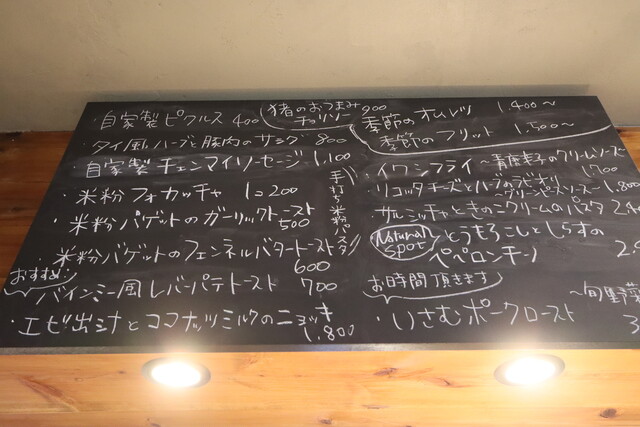 ・自家製ピクルス 400
猪のおつまみ
チョリソー 900
・タイ風ハーブと豚肉のサラダ 800
自家製チェンマイソーセージ 1,100
・米粉フォカッチャ 1コ200
・米粉バゲットのガーリックトースト
500
・米粉バゲットのフェンネルバタートースト
600
おすすめ!
バインミー風レバーパテトースト 700
・エビ出汁とココナッツミルクのニョッキ
1,800
手打ち米粉パスタ
季節のオムレツ 1,400〜
季節のフリット 1,500〜
・イワシフライ〜青唐辛子のクリームソース
1700
・リコッタチーズとハーブのラビオリ
〜グリーンピースソース〜 1,800
・サルシッチャときのこクリームのパスタ
Natural
spot
とうもろこしとしらすの
ペペロンチーノ
お時間頂きます
・いさむポークロースト
〜旬野菜